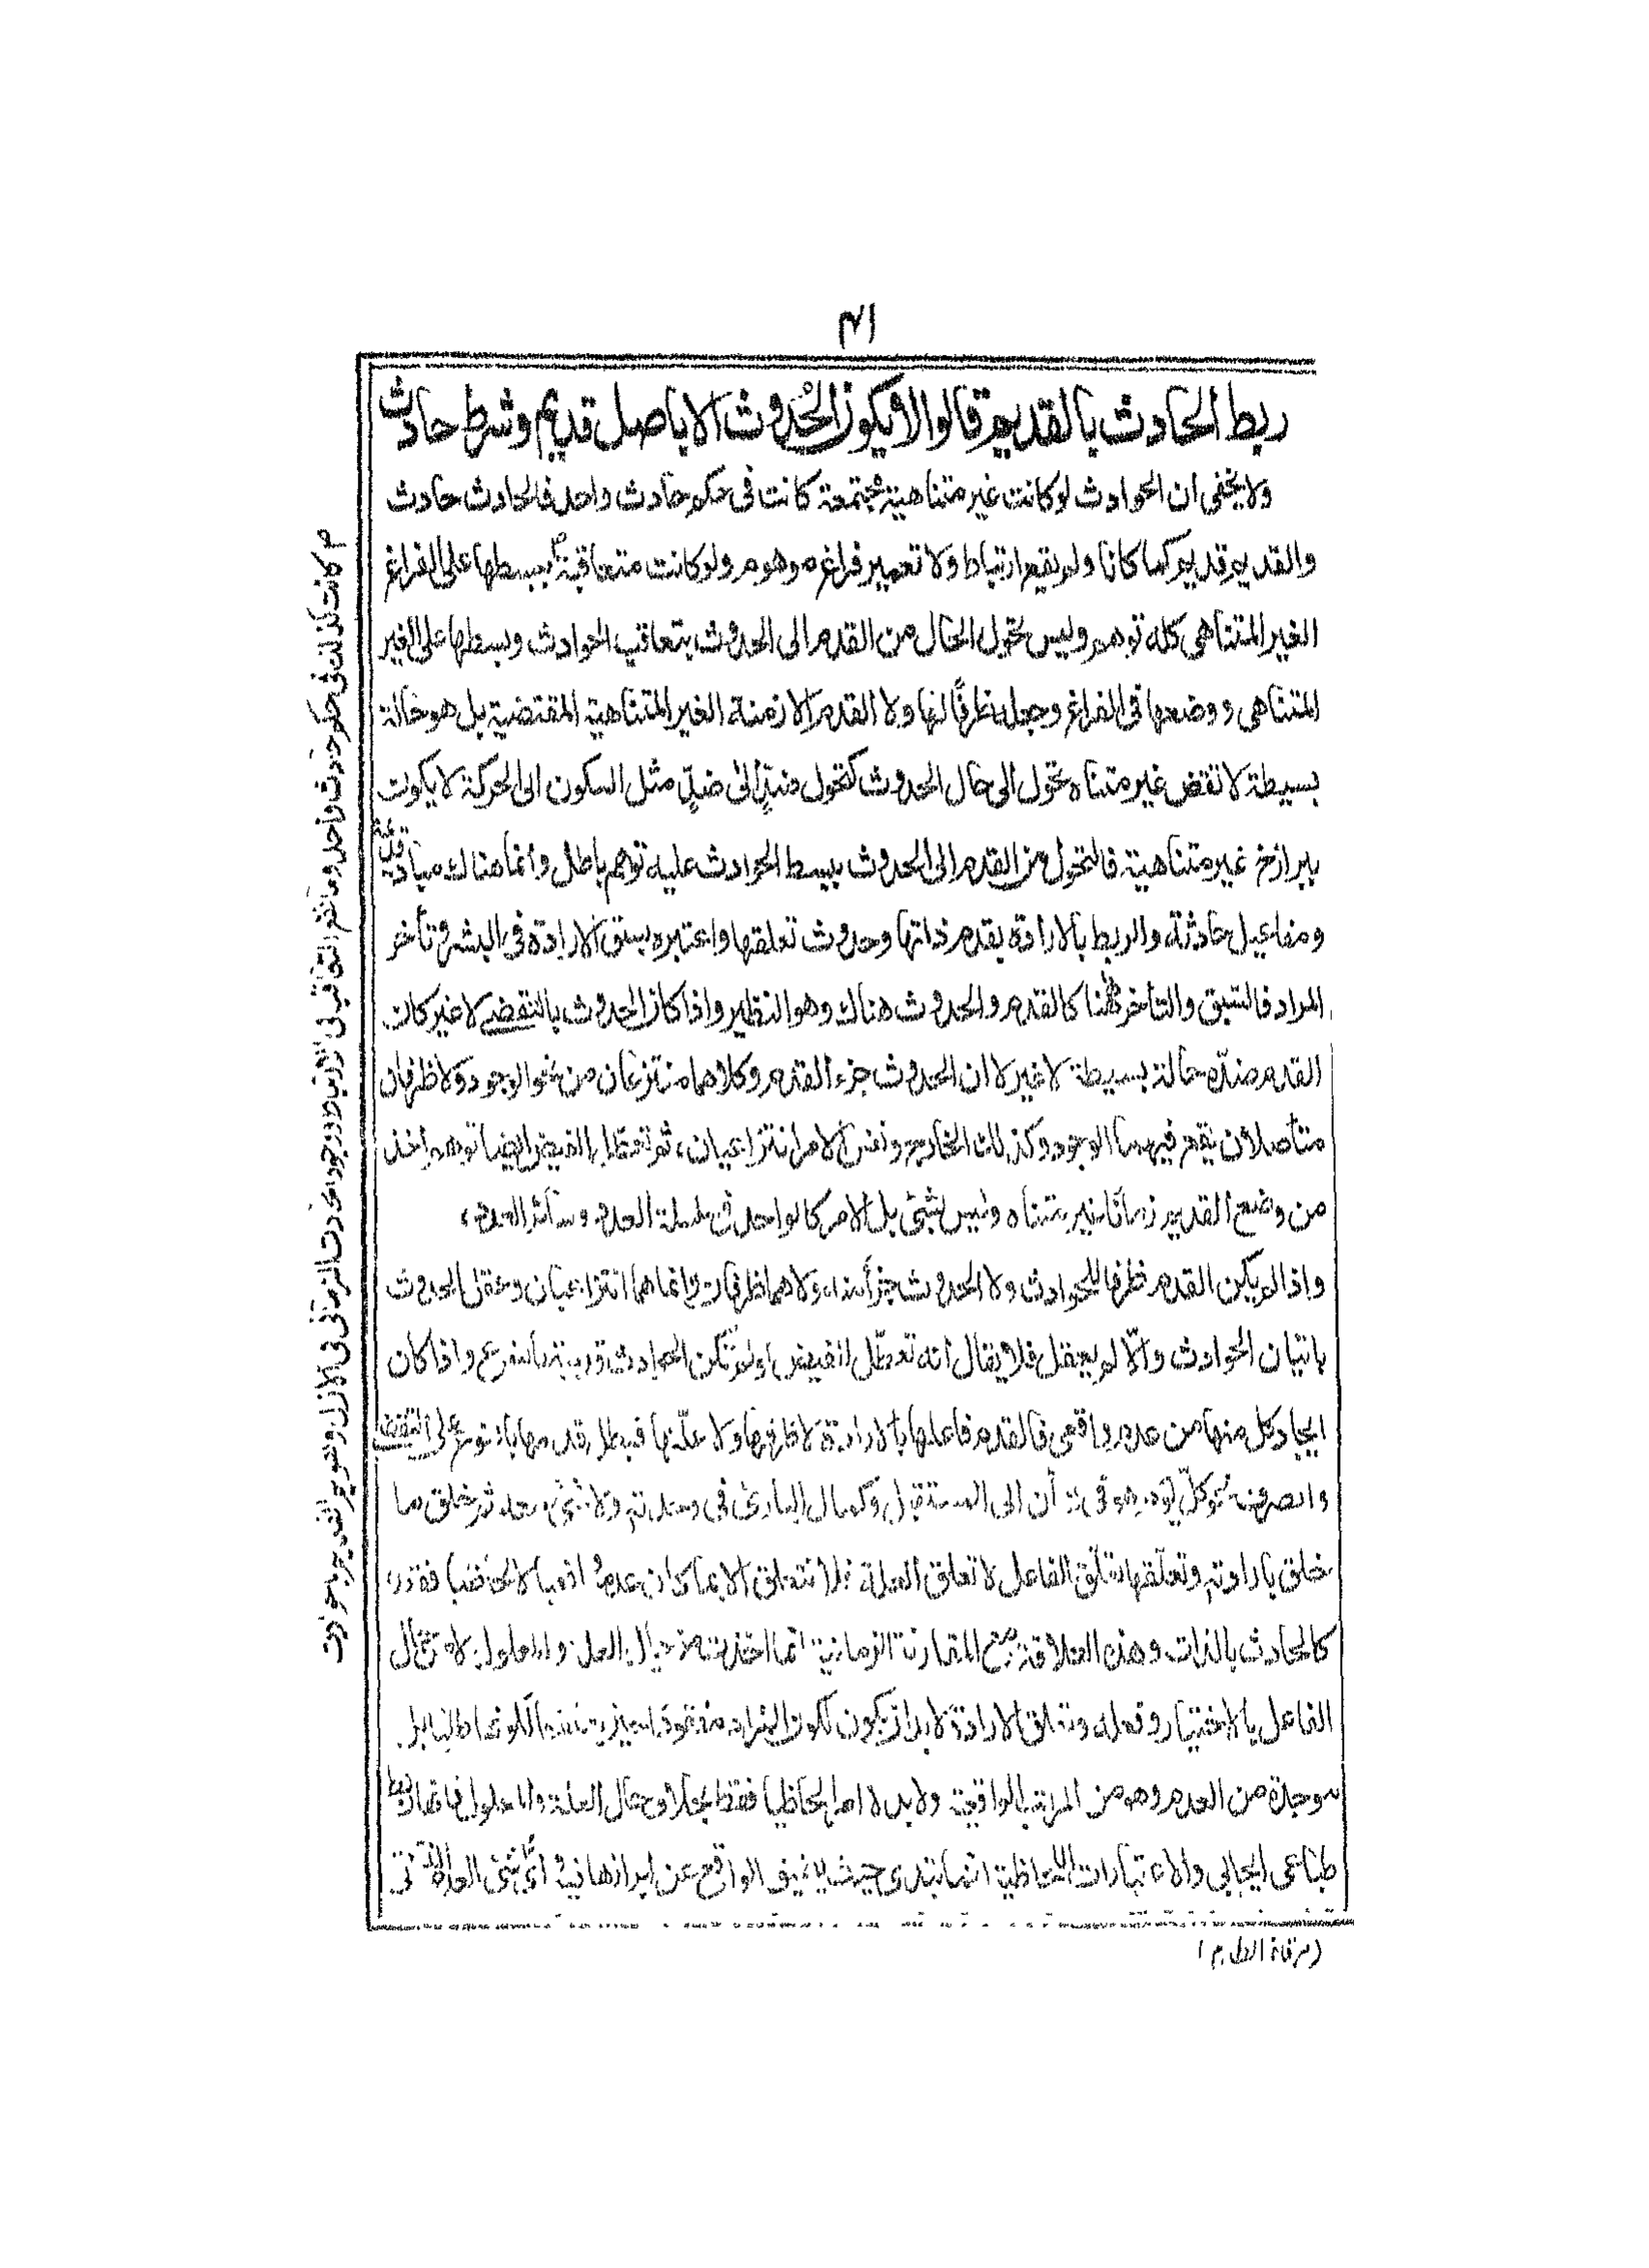 ٤١
ربط الحادث بالقديم قالوا لا يكون الحُدوث الا باصل قديم وشرط حادث
ولا يخفى ان الحوادث لو كانت غير متناهية مجتمعة كانت فى حكم حادث واحد فالحادث حادث
والقديم قديم كما كانا ولم يقع ارتباط ولا تعمير فراغ موهوم ولو كانت متعاقبة م فبسطها على الفراغ
الغير المتناهى كله توهم وليس تحول الحال من القدم الى الحدوث بتعاقب الحوادث وبسطها على الغير
المتناهى ووضعها فى الفراغ وجعله ظرفًا لها ولا القدم الازمنة الغير المتناهية المقتضية بل هو حالة
بسيطة لا تقض غير متناه تحول الى حال الحدوث كتحول ضدٍ الى ضدٍ مثل السكون الى الحركة لا يكون
ببرازخ غير متناهية فالتحول من القدم الى الحدوث ببسط الحوادث عليه توهم باطل وانما هناك مبادى قديمة
ومفاعيل حادثة والربط بالارادة بقدم ذاتها وحدوث تعلقها واعتبره بسبق الارادة فى البشر وتأخر
المراد فالسبق والتاخر ههنا كالقدم والحدوث هناك وهو النظير واذا كان الحدوث بالتقضى لا غير كان
القدم ضدّه حالة بسيطة لا غير لا ان الحدوث جزء القدم وكلاهما منتزعان من نحو الوجود ولا ظرفان
متأصلان يقع فيهما الوجود وكذلك الخارج ونفس الامر انتزاعيان، ثم تعطل الفيض ايضا توهم اخذ
من وضع القديم زمانًا غير متناه وليس بشئ بل الامر كالواحد فى سلسلة العدد وسائر العدد،
واذا لم يكن القدم ظرفا للحوادث ولا الحدوث جزأ منه ولا هما ظرفان وانما هما انتزاعيان وعقل الحدوث
باتيان الحوادث والّا لم يعقل فلا يقال انه تعطّل الفيض او لم تكن الحوادث واذا كان
ايجاد كل منها من عدم واقعى فالقدم فاعلها بالارادة لا ظرفها ولا علّتها فبطل قدمها بالنوع على التقضى
والصرف نحو كلّ يوم هو فى شأن الى المستقبل وكمال البارئ فى وحدته ولا شئ معه ثم خلق ما
خلق بارادته وتعلّقها تعلّق الفاعل لا تعلق العلة
كالحادث بالذات وهذه العلاقة مع المقارنة الزمانية انما اخذت من حال العلة والمعلول لا من حال
الفاعل بالاختيار وفعله وتعلق الارادة لا بد ان يكون لكون المراد
موجدة من العدم وهو من المرتبة الواقعية ولا بد لا امرا لحاظيا فقط بخلاف حال العلة والمعلول فانهما ربط
طباعى ايجابى والاعتبارات اللحاظية انما تبتدى حيث
(مرقاة الطارم)
م كانت كذلك فى حكم حادث واحد وما نفع التعاقب فى الارتباط ووجود الحادث الزمانى فى الازل